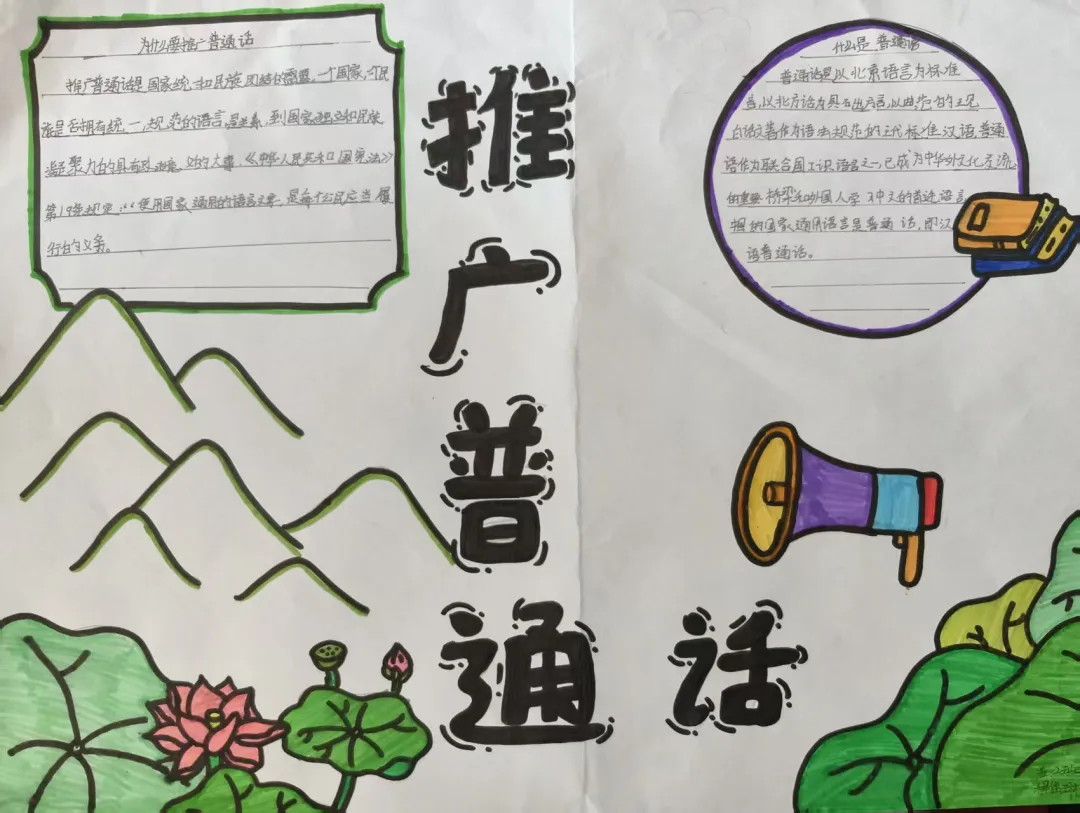 为什么要推广普通话
推广普通话是国家统一和民族团结的需要。一个国家、一个民
族是否拥有统一、规范的语言,是关系到国家独立和民族
凝聚力的具有政治意义的大事。《中华人民共和国宪法》
第19条规定:“使用国家通用的语言文字,是每个公民应当履
行的义务。
推
广
普
通话
什么是普通话
普通话是以北京语言为标准
音,以北方话为具石出方言,以典范的
白话文著作为语法规范的现代标准汉语,普通
话作为联合国工作语言之一,已成为中华外文化交流
的重要桥梁和外国人学习中文的首选语言
国家通用语言是普通话,即汉
语普通话。